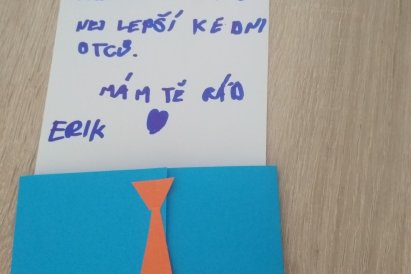 NEJ LEPŠÍ K E DNI
OTCŮ.
MÁM TĚ RÁD
ERIK